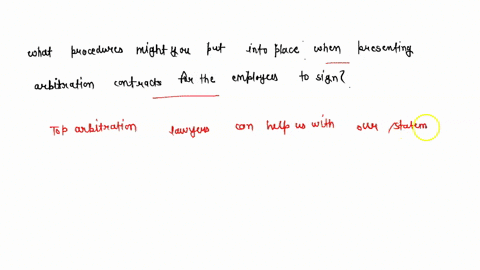 what procedures might you put into place when presenting
arbitration contracts for the employees to sign?
Top arbitration lawyers can help us with our statem